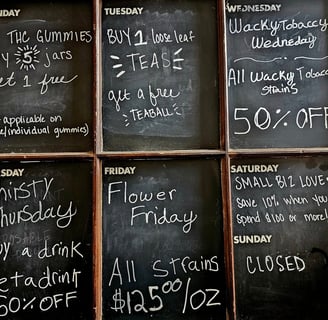 NDAY
THC GUMMIES
y 5 jars
et 1 free
applicable on
e/individual gummies)
TUESDAY
BUY 1 loose leaf
TEAS
get a free
TEABALL
WEDNESDAY
Wacky Tobaccy
Wednesday
All Wacky Tobacc
strains
50% OFF
SDAY
hirsty
Thursday
uy a drink
et a drink
50% OFF
FRIDAY
Flower
Friday
All Strains
$125.00/OZ
SATURDAY
SMALL BIZ LOVE
Save 10% when you
Spend $100 or more!
SUNDAY
CLOSED